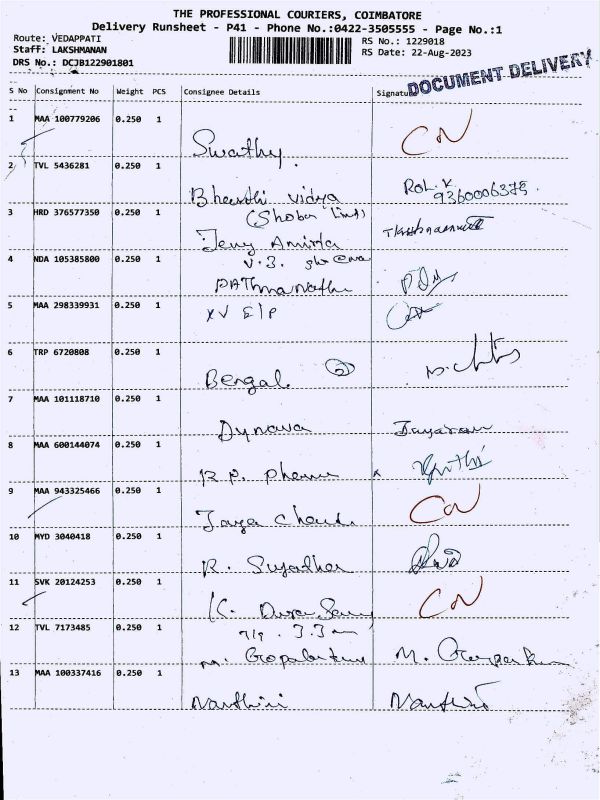 THE PROFESSIONAL COURIERS, COIMBATORE
Delivery Runsheet - P41 - Phone No.:0422-3505555 - Page No.:1
Route: VEDAPPATI
Staff: LAKSHMANAN
DRS No.: DCJB122901801
RS No.: 1229018
RS Date: 22-Aug-2023
DOCUMENT DELIVERY
S No Consignment No Weight PCS Consignee Details Signature
1 MAA 100779206 0.250 1
Swathy. CN
2 TVL 5436281 0.250 1
Bharathi vidya Rol. K
9360006378.
3 HRD 376577350 0.250 1
(Shoba
Jeny Amirta
4 NDA 105385800 0.250 1
V.3.
Pathmanathe
5 MAA 298339931 0.250 1
XV E/P
6 TRP 6720808 0.250 1
Bengal. 2
7 MAA 101118710 0.250 1
Dynava Jayaram
8 MAA 600144074 0.250 1
R. P. Pharma x
9 MAA 943325466 0.250 1
Jaya CN
10 MYD 3040418 0.250 1
R. Sujatha
11 SVK 20124253 0.250 1
K. Durai Samy CN
12 TVL 7173485 0.250 1
M. M.
13 MAA 100337416 0.250 1
Nanthini Nanthini